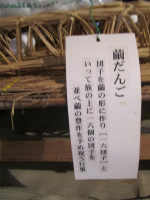 繭だんご
団子を繭の形に作り「一六団子」と
いって族の上に一六個の団子を
並べ繭の豊作を予め祝う行事